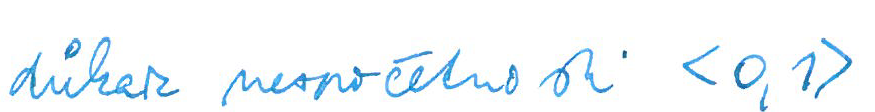 důkaz nespočetnosti <0,1>